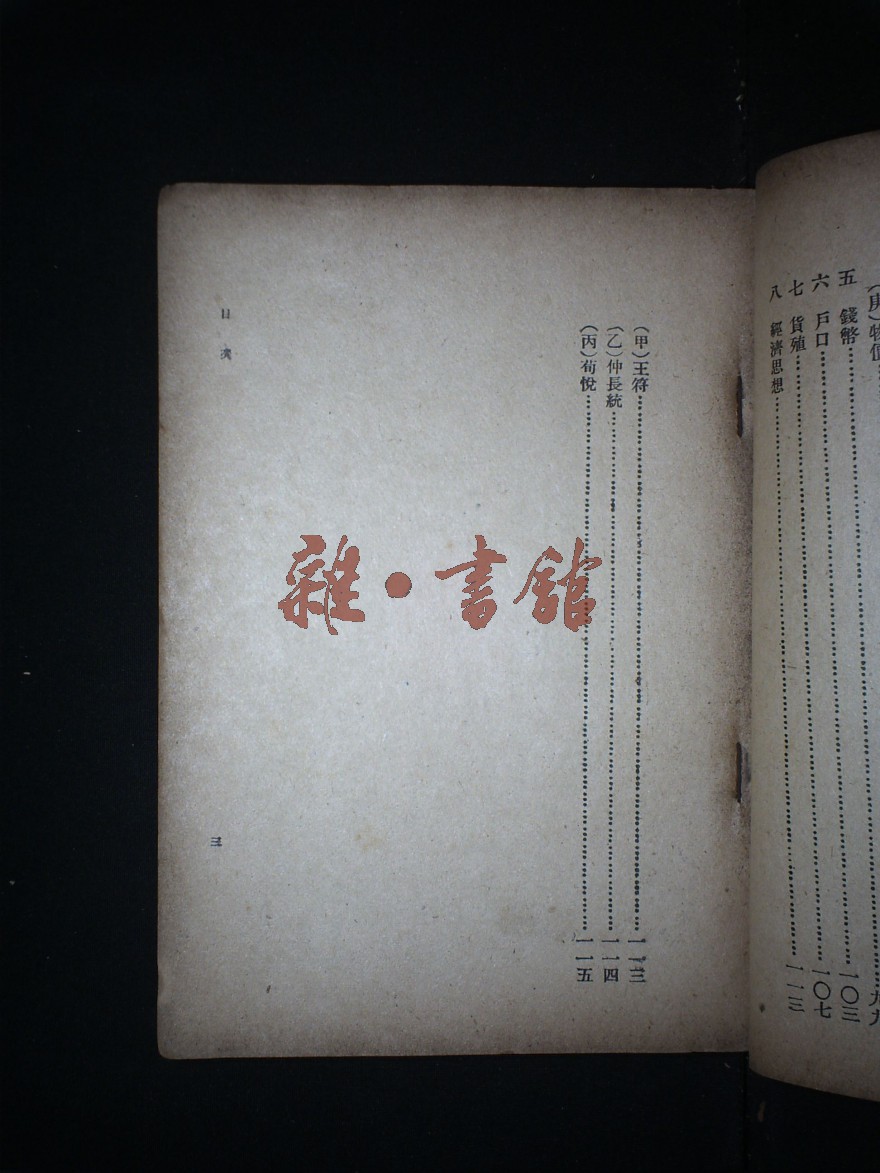 （庚）物值……九九
五　錢幣……一〇三
六　戶口……一〇七
七　貨殖……一一三
八　經濟思想
（甲）王符……一一三
（乙）仲長統……一一四
（丙）荀悅……一一五
目次
三
雜・書館